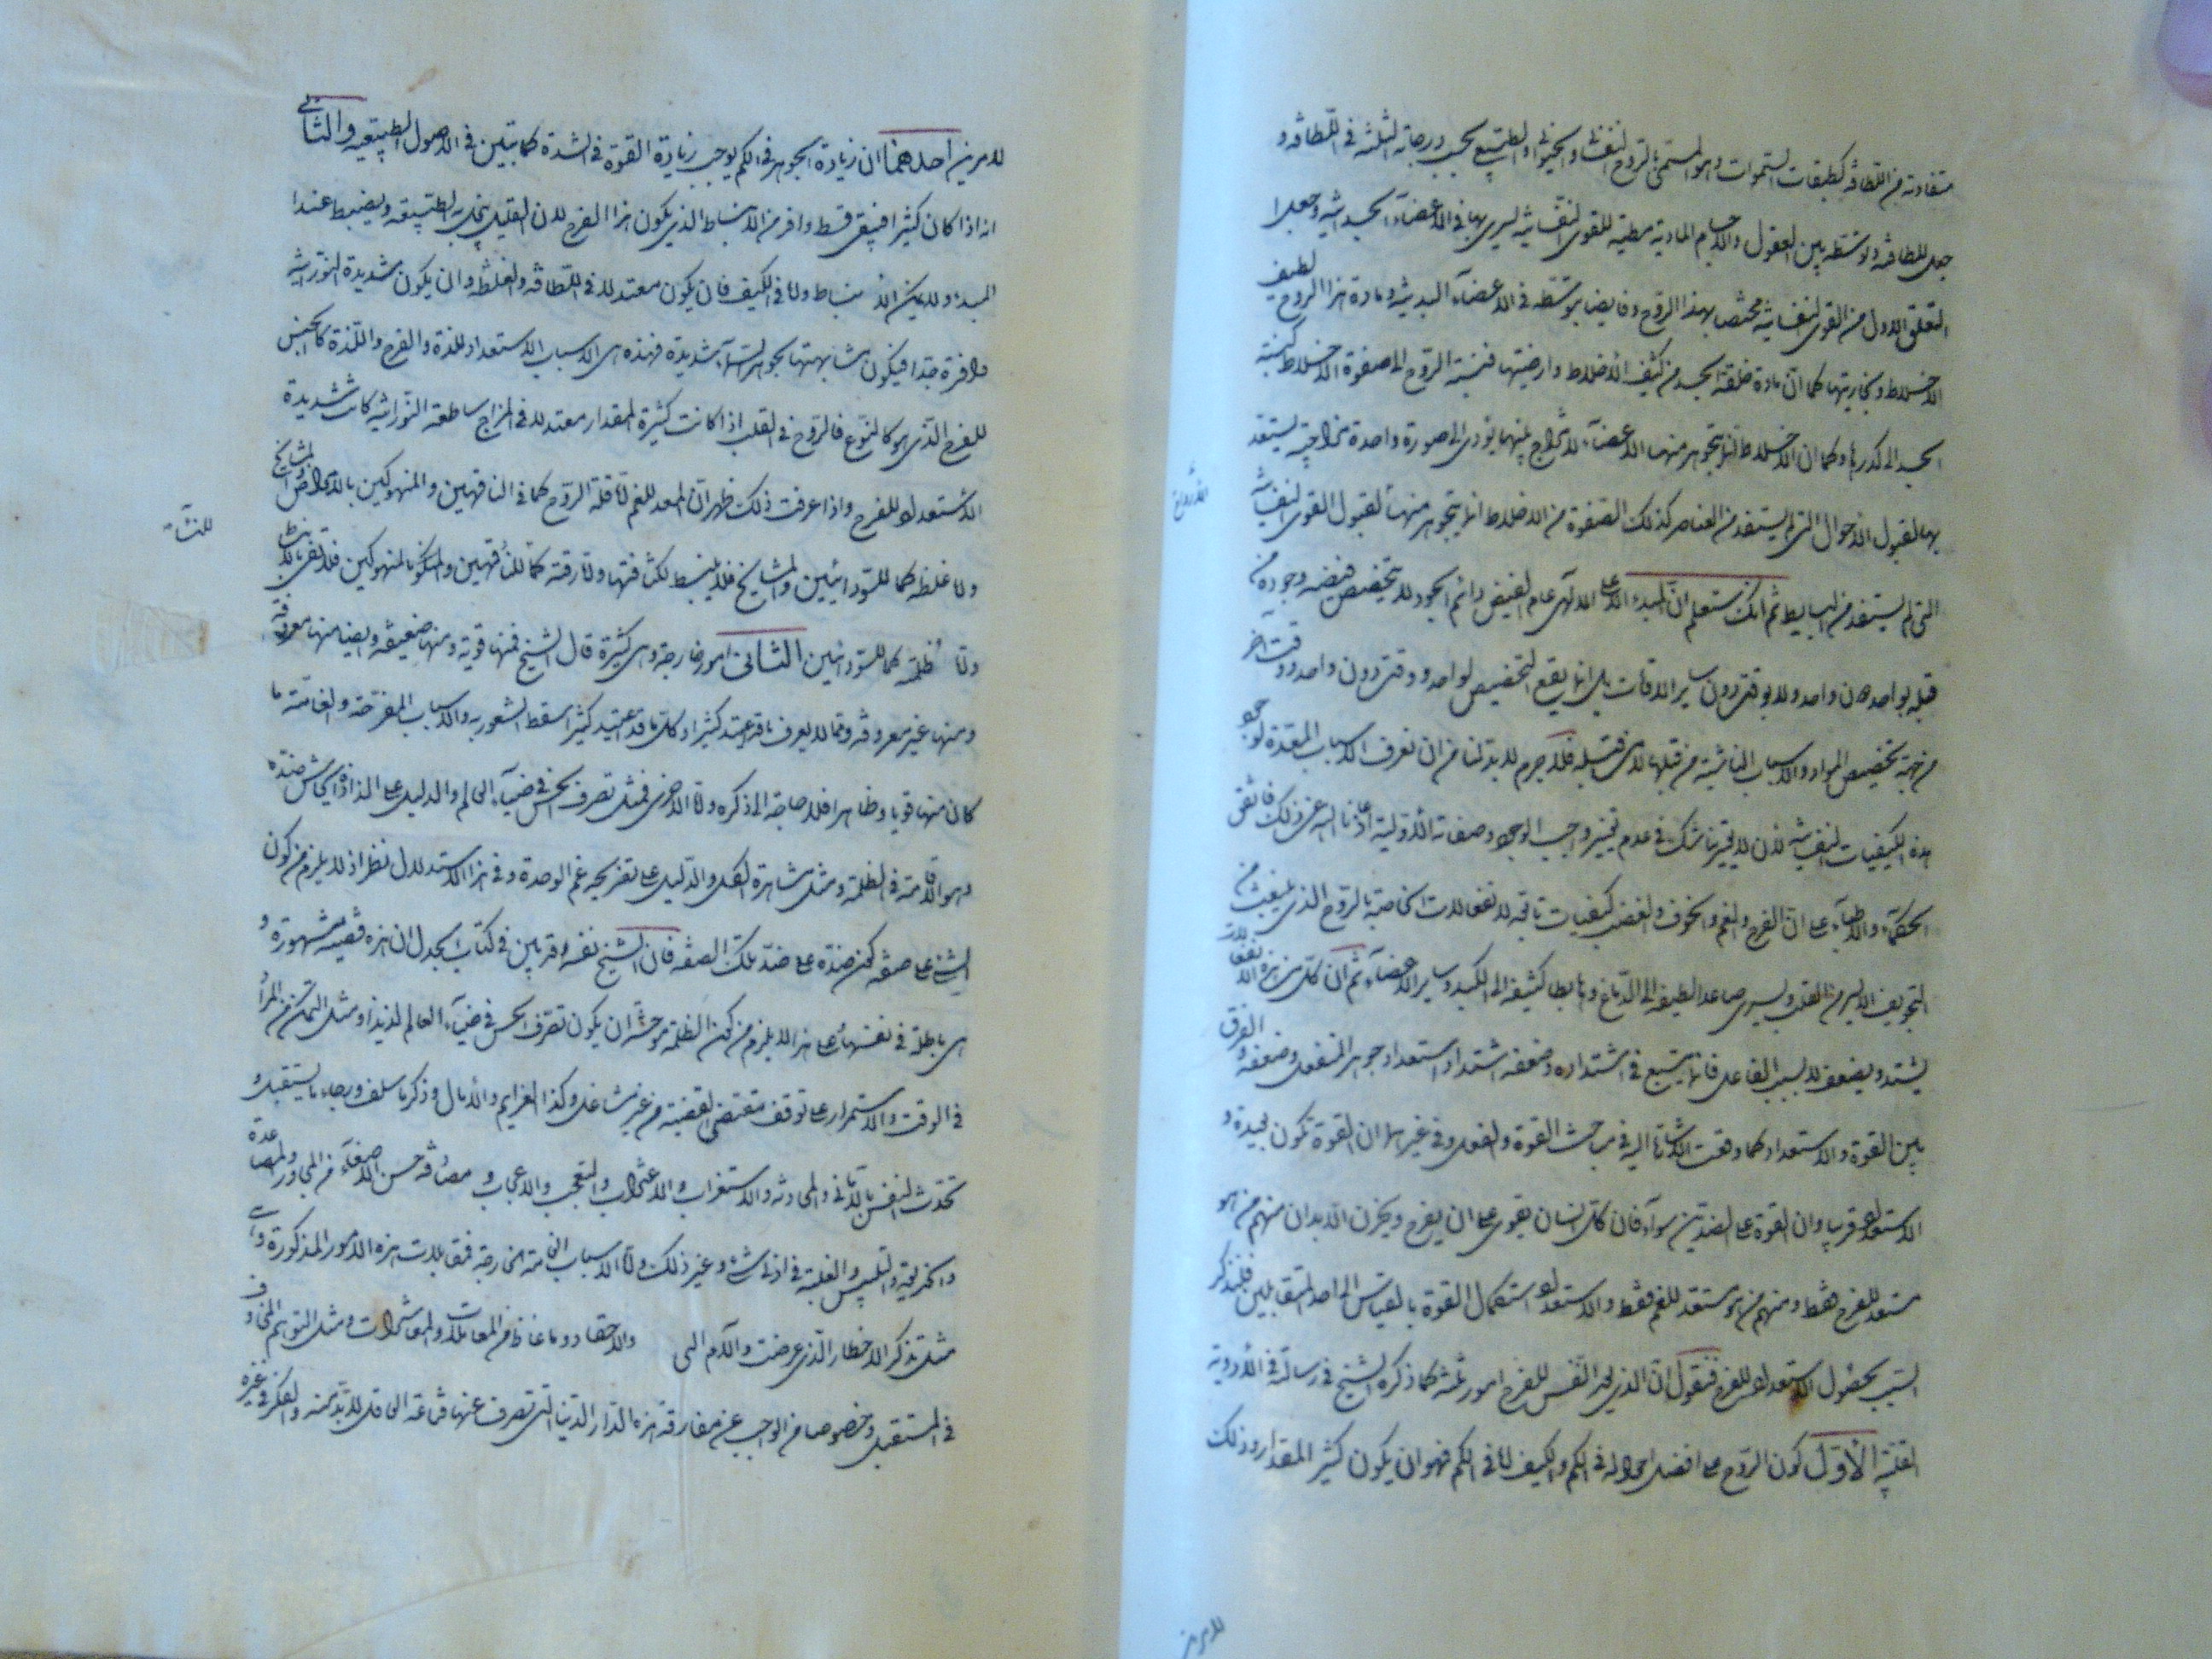 متفاوتة من اللطافة كطبقات السموات وهو المسمى بالروح النفسانى والحيوانى والطبيعى بحسب درجاته الثلثة فى اللطافة و
جعل للطافته وتوسطه بين العقول والاجسام المادية مطية للقوى النفسانية ليسرى بها فى الاعضاء الجسدانية وجعل
التعلق الاول من القوى النفسانية مختص بهذا الروح وفايضا بتوسطه فى الاعضاء البدنية ومادة هذا الروح لطيف
الاخلاط وبخاريتها كما ان مادة خلقة الجسد من كثيف الاخلاط وارضيتها فنسبة الروح الى صفوة الاخلاط كنسبة
الجسد الى كدرها وكما ان الاخلاط انما يتجوهر منها الاعضاء لامتزاج بينها يؤدى الى صورة واحدة مزاجية يستعد
بها لقبول الاحوال التى لم يستفد من العناصر كذلك الصفوة من الاخلاط انما يتجوهر منها لقبول القوى النفسانية
التى لم يستفد من البسايط ثم انك ستعلم ان المبدء الاعلى الالهى عام الفيض دائم الجود لا يتخصص فيضه وجوده من
قبله بواحد دون واحد ولا بوقت دون ساير الاوقات بل انما يقع التخصيص لواحد ووقت دون واحد ووقت آخر
من جهة تخصيص المواد والاسباب الناشية من قبلها لا من قبله فلا جرم لا بد لنا من ان نعرف الاسباب المعدة لوجود
هذه الكيفيات النفسانية لان لا يتخيرنا شك فى عدم تغير واجب الوجود وصفاته الاولية اعاذنا الله عن ذلك فاتفق
الحكماء والاطباء على ان الفرح والغم والخوف والغضب كيفيات تابعة لانفعالات الخاصة بالروح الذى ينبعث من
التجويف الايسر من القلب ويسرى صاعدا لطيفه الى الدماغ وهابطا كثيفه الى الكبد وساير الاعضاء ثم ان كل من هذه الانفعالات
يشتد ويضعف لا بسبب الفاعل فانما يتبع فى اشتداده وضعفه اشتداد استعداد جوهر المنفعل وضعفه والفرق
بين القوة والاستعداد كما وقعت الاشارة اليه فى مباحث القوة والفعل وفى غيرها ان القوة تكون بعيدة و
الاستعداد قريبا وان القوة على الضدين سواء فان كل انسان يقوى على ان يفرح ويحزن الا ان منهم من هو
مستعد للفرح فقط ومنهم من هو مستعد للغم فقط والاستعداد استكمال القوة بالقياس الى احد المتقابلين فلنذكر
السبب لحصول الاستعداد للفرح فنقول ان الذى يعد النفس للفرح امور ثلثة كما ذكره الشيخ فى رسالته فى الادوية
القلبية الاول كون الروح على افضل احواله فى الكم والكيف اما فى الكم فهو ان يكون كثير المقدار وذلك
لامرين
لامرين احدهما ان زيادة الجوهر فى الكم يوجب زيادة القوة فى الشدة كما تبين فى الاصول الطبيعية والثانى
انه اذا كان كثيرا فيبقى قسط وافر من الانبساط الذى يكون هذا الفرح لان القليل ينجذبه الطبيعة ويضبط عند
المبدء ولا يمكن الانبساط واما فى الكيف فان يكون معتدلا فى اللطافة والغلظة وان يكون شديدة النورانية
وافرة جدا فيكون مشابهتها بجوهر السماء شديدة فهذه هى الاسباب الاستعداد للذة والفرح واللذة كالجنس
للفرح الذى هو كالنوع فالروح فى القلب اذا كانت كثيرة المقدار معتدلا فى المزاج ساطعة النورانية كانت شديدة
الاستعداد للفرح واذا عرفت ذلك ظهر ان المعد للغم اما قلة الروح كما فى الناقهين والمنهوكين بالامراض والمشايخ
واما غلظه كما للسودائيين والمشايخ فلا ينبسط لكثافتها واما رقته كما للناقهين والمنهوكين فلا تفى بالانبساط
واما ظلمته كما للسودائيين الثانى امور خارجة وهى كثيرة قال الشيخ فمنها قوية ومنها ضعيفة وايضا منها معروفة
ومنها غير معروفة ومما لا يعرف ما قد اعتيد كثيرا وكل ما قد اعتيد كثيرا سقط الشعور به والاسباب المفرحة والغامة ما
كان منها قويا وظاهرا فلا حاجة الى ذكره واما الاخرى فمثل تصرف الحس فى ضياء العالم والدليل على الذاذه ايحاش ضده
وهو الاقامة فى الظلمة ومثل مشاهدة الشكل والدليل على تفريحه غم الوحدة وفى هذا الاستدلال نظر اذ لا يلزم من كون
الشئ على صفة كون ضده على ضد تلك الصفة فان الشيخ نفسه قد بين فى كتاب الجدل ان هذه قضية مشهورة و
هى باطلة فى نفسها على هذا لا يلزم من كون الظلمة موحشة ان يكون تصرف الحس فى ضياء العالم لذيذا ومثل التمكن من المراد
فى الوقت والاستمرار على توقف مقتضى القضية من غير شاغل وكذا العزايم والآمال وذكر ما سلف ورجاء ما يستقبل و
تحدث النفس بالامانى والمحادثة والاستغراب والاغتراب والتعجب والاعجاب ومصادفة حسن الاصغاء من المحاور والمساعدة
والخديعة والتلبيس والغلبة فى ادنى شئ وغير ذلك واما الاسباب الغامة الخارجة فمقابلات هذه الامور المذكورة و
مثل تذكر الاخطار التى عرضت والآلام التى والاحقاد وما غاظ من المعاملات والمعاشرات ومثل التوهم المخاوف
فى المستقبل وخصوصا من الواجب عن مفارقة هذه الدار الدنيا التى تصرف عنها قناعة العاقل للابد منه والفكر فى غيره